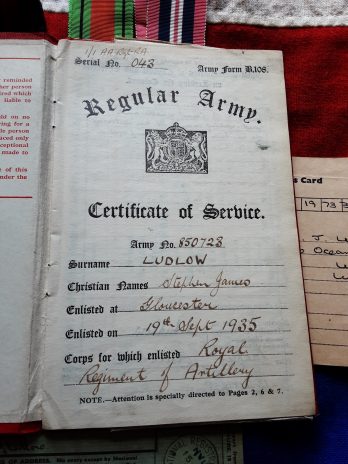 1/1 AA
Serial No. 043 Army Form B,108.
Regular Army.
Certificate of Service.
Army No. 850728
Surname LUDLOW
Christian Names Stephen James
Enlisted at Gloucester
Enlisted on 19th Sept 1935
Corps for which enlisted Royal
Regiment of Artillery
NOTE.—Attention is specially directed to Pages 2, 6 & 7.
reminded
her person
ired which
liable to
ld on no
ring for a
le person
aced only
ceptional
made to
e of this
under the
s Card
19 73
J. L
Ocean